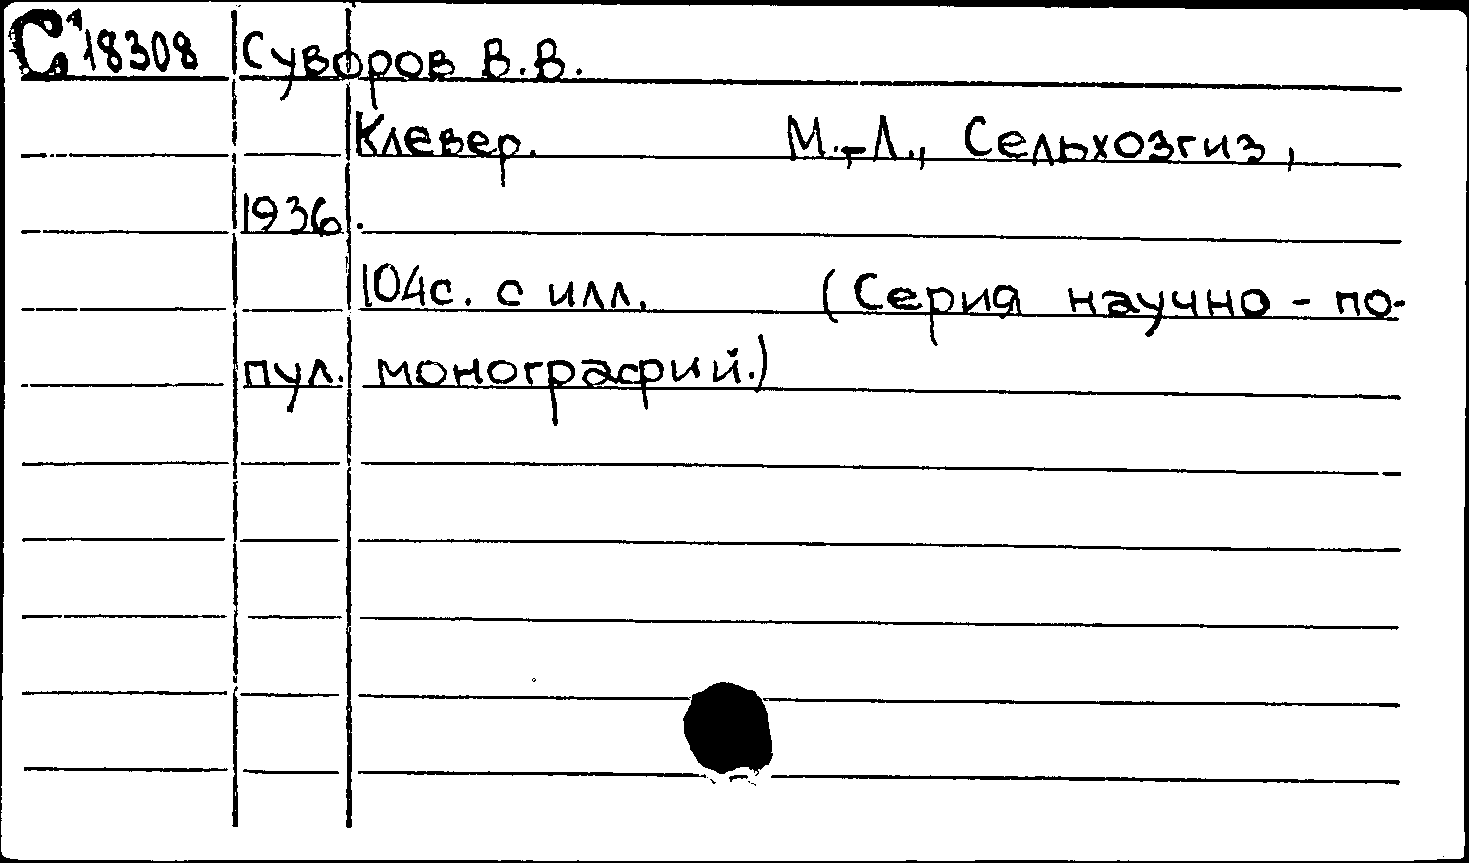 С¹18308 Суворов В.В.
Клевер. М.-Л., Сельхозгиз,
1936.
104с. с илл. (Серия научно-по-
пул. монографий.)